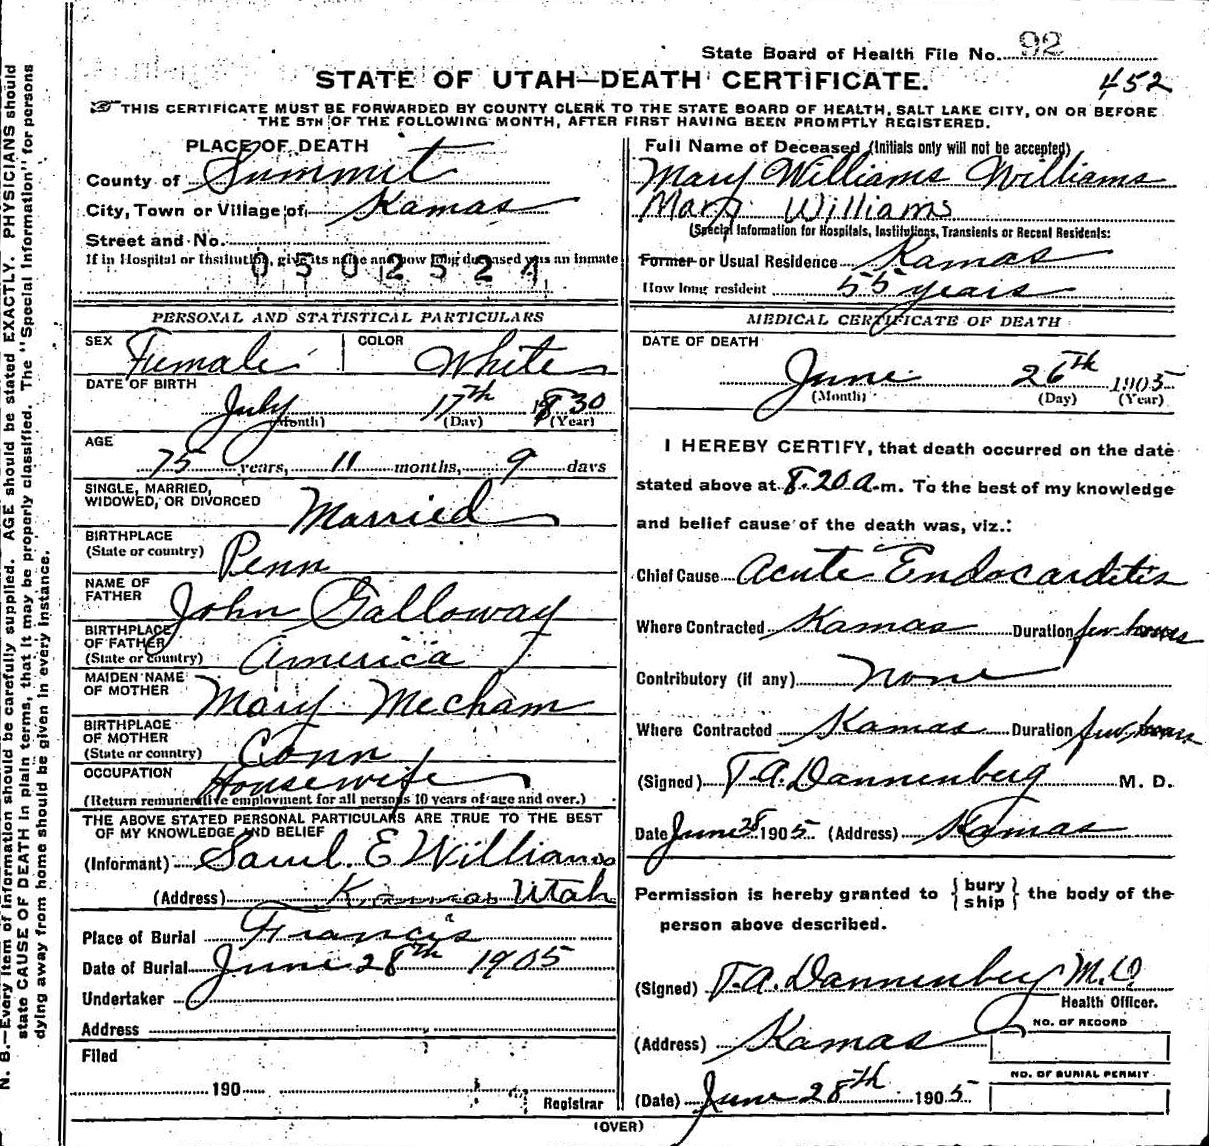 State Board of Health File No. 92
STATE OF UTAH—DEATH CERTIFICATE.
452
THIS CERTIFICATE MUST BE FORWARDED BY COUNTY CLERK TO THE STATE BOARD OF HEALTH, SALT LAKE CITY, ON OR BEFORE
THE 5TH OF THE FOLLOWING MONTH, AFTER FIRST HAVING BEEN PROMPTLY REGISTERED.
PLACE OF DEATH
County of Summit
City, Town or Village of Kamas
Street and No.
If in Hospital or Institution, give its name and how long deceased was an inmate
0502524
PERSONAL AND STATISTICAL PARTICULARS
SEX Female COLOR White
DATE OF BIRTH
July 17th 1830
(Month) (Day) (Year)
AGE
75 years, 11 months, 9 days
SINGLE, MARRIED,
WIDOWED, OR DIVORCED Married
BIRTHPLACE
(State or country) Penn
NAME OF
FATHER John Galloway
BIRTHPLACE
OF FATHER
(State or country) America
MAIDEN NAME
OF MOTHER Mary Mecham
BIRTHPLACE
OF MOTHER
(State or country) Conn
OCCUPATION Housewife
(Return remunerative employment for all persons 10 years of age and over.)
THE ABOVE STATED PERSONAL PARTICULARS ARE TRUE TO THE BEST
OF MY KNOWLEDGE AND BELIEF
(Informant) Saml. E Williams
(Address) Kamas Utah
Place of Burial Francis
Date of Burial June 28th 1905
Undertaker
Address
Filed
190
Registrar
Full Name of Deceased (Initials only will not be accepted)
Mary Williams Williams
Mary Williams
(Special Information for Hospitals, Institutions, Transients or Recent Residents:
Former or Usual Residence Kamas
How long resident 55 years
MEDICAL CERTIFICATE OF DEATH
DATE OF DEATH
June 26th 1905
(Month) (Day) (Year)
I HEREBY CERTIFY, that death occurred on the date
stated above at 8.20 a.m. To the best of my knowledge
and belief cause of the death was, viz.:
Chief Cause Acute Endocarditis
Where Contracted Kamas Duration few hours
Contributory (if any) None
Where Contracted Kamas Duration few hours
(Signed) T.A. Dannenberg M. D.
Date June 28 1905 (Address) Kamas
Permission is hereby granted to { bury ship } the body of the
person above described.
(Signed) T.A. Dannenberg M.D
Health Officer.
NO. OF RECORD
(Address) Kamas
NO. OF BURIAL PERMIT
(Date) June 28th 1905
(OVER)
N. B.—Every item of information should be carefully supplied. AGE should be stated EXACTLY. PHYSICIANS should
state CAUSE OF DEATH in plain terms, that it may be properly classified. The "Special Information" for persons
dying away from home should be given in every instance.